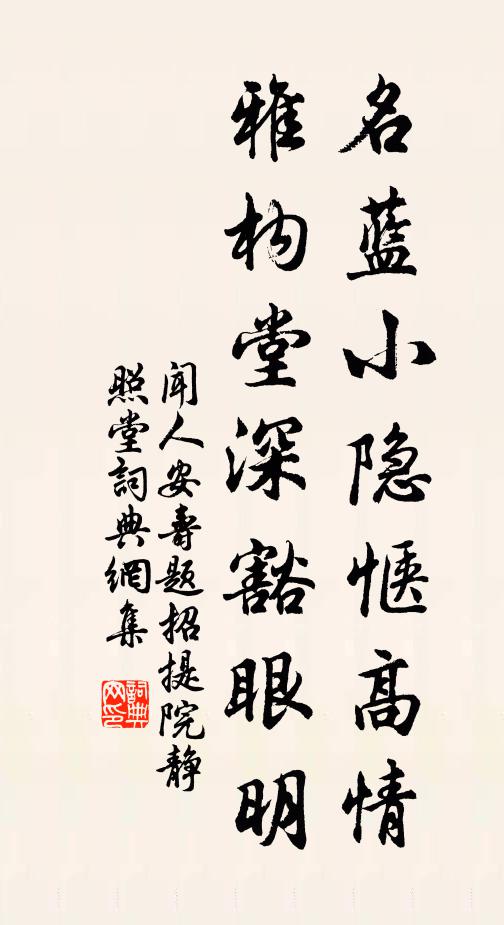 名蓝小隐惬高情
雅构堂深豁眼明
闻人安寿题招提院静
照堂词典网集
詞典网印